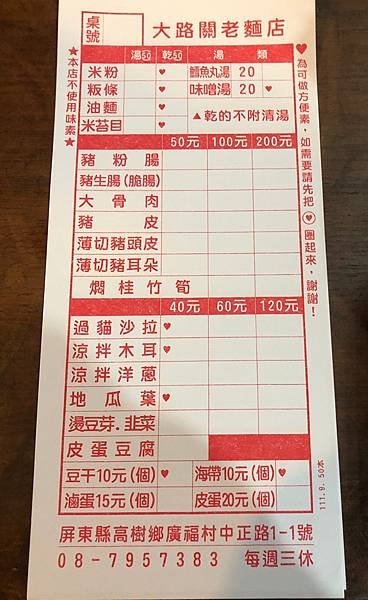 桌號 大路關老麵店
湯50 乾50 湯類
米粉 ♥ 鱈魚丸湯 20
粄條 ♥ 味噌湯 20 ♥
油麵 ♥ ▲乾的不附清湯
米苔目 ♥
50元 100元 200元
豬粉腸
豬生腸(脆腸)
大骨肉
豬皮
薄切豬頭皮
薄切豬耳朵
燜桂竹筍
40元 60元 120元
過貓沙拉 ♥
涼拌木耳 ♥
涼拌洋蔥
地瓜葉 ♥
燙豆芽.韭菜
皮蛋豆腐
豆干10元(個) ♥ 海帶10元(個) ♥
滷蛋15元(個) 皮蛋20元(個)
屏東縣高樹鄉廣福村中正路1-1號
08-7957383 每週三休
★本店不使用味素★
♥為可做方便素，如需要請先把♥圈起來，謝謝！
111.9.50本